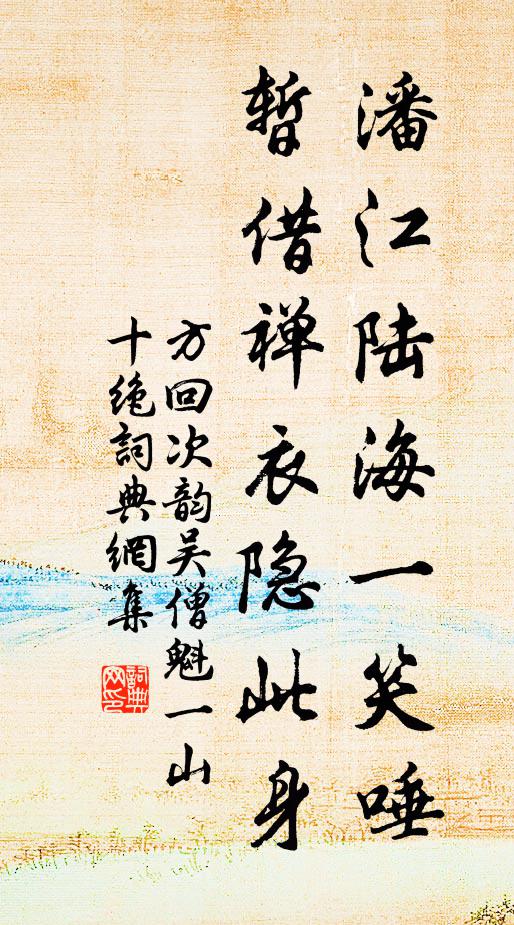 潘江陆海一笑唾
暂借禅衣隐此身
方回次韵吴僧魁一山
十绝詞典網集
詞典网印